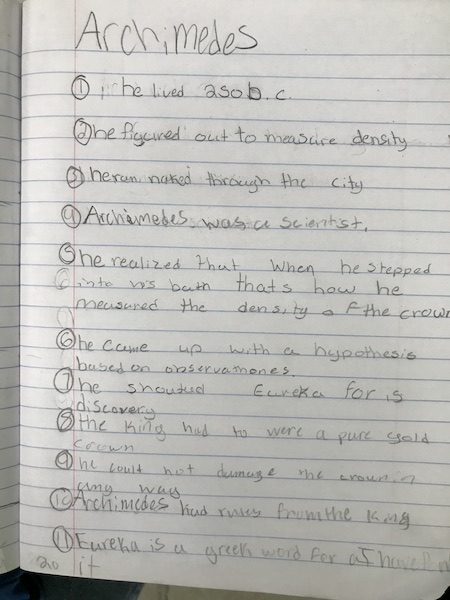 Archimedes
① he lived 250 b.c.
② he figured out to measure density
③ he ran naked through the city
④ Archimedes was a scientist.
⑤ he realized that when he stepped
into his bath thats how he
measured the density of the crow
⑥ he came up with a hypothesis
based on observationes.
⑦ he shouted Eureka for is
discovery
⑧ the King had to were a pure gold
crown
⑨ he could not damage the crown in
any way
⑩ Archimedes had rules from the King
⑪ Eureka is a greek word for I have
20 it